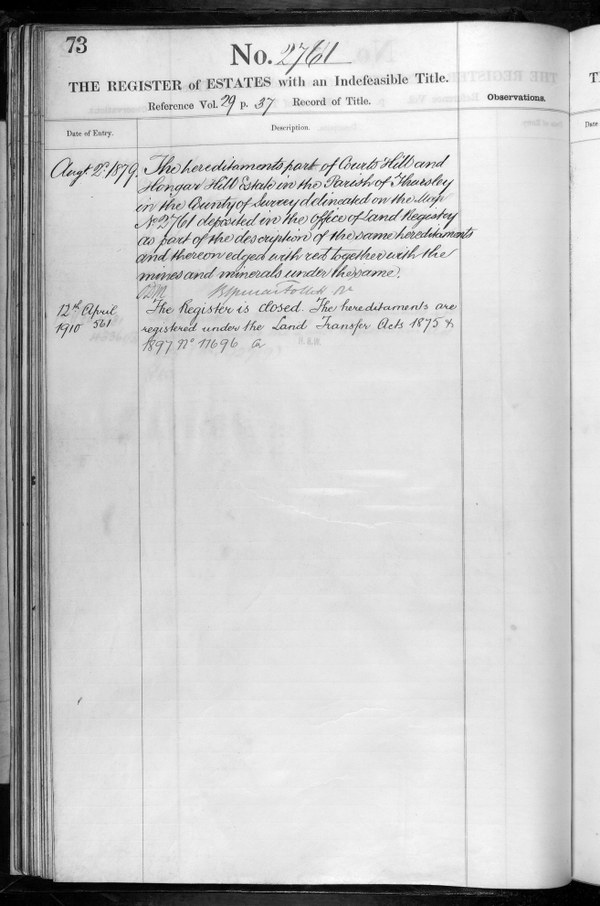 73
No. 2761
THE REGISTER of ESTATES with an Indefeasible Title.
Reference Vol. 29 p. 37 Record of Title.
Observations.
Date of Entry.
Description.
Augt. 2d. 1879.
The hereditaments part of Courts Hill and
Hongar Hill Estate in the Parish of Thursley
in the County of Surrey delineated on the Map
No 2761 deposited in the office of Land Registry
as part of the description of the same hereditaments
and thereon edged with red together with the
mines and minerals under the same.
12th April
1910 561
The Register is closed. The hereditaments are
registered under the Land Transfer Acts 1875 &
1897 No 11696
Date